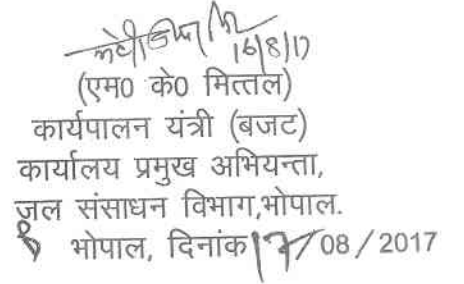 16/8/17
(एम0 के0 मित्तल)
कार्यपालन यंत्री (बजट)
कार्यालय प्रमुख अभियन्ता,
जल संसाधन विभाग,भोपाल.
भोपाल, दिनांक 17/08/2017